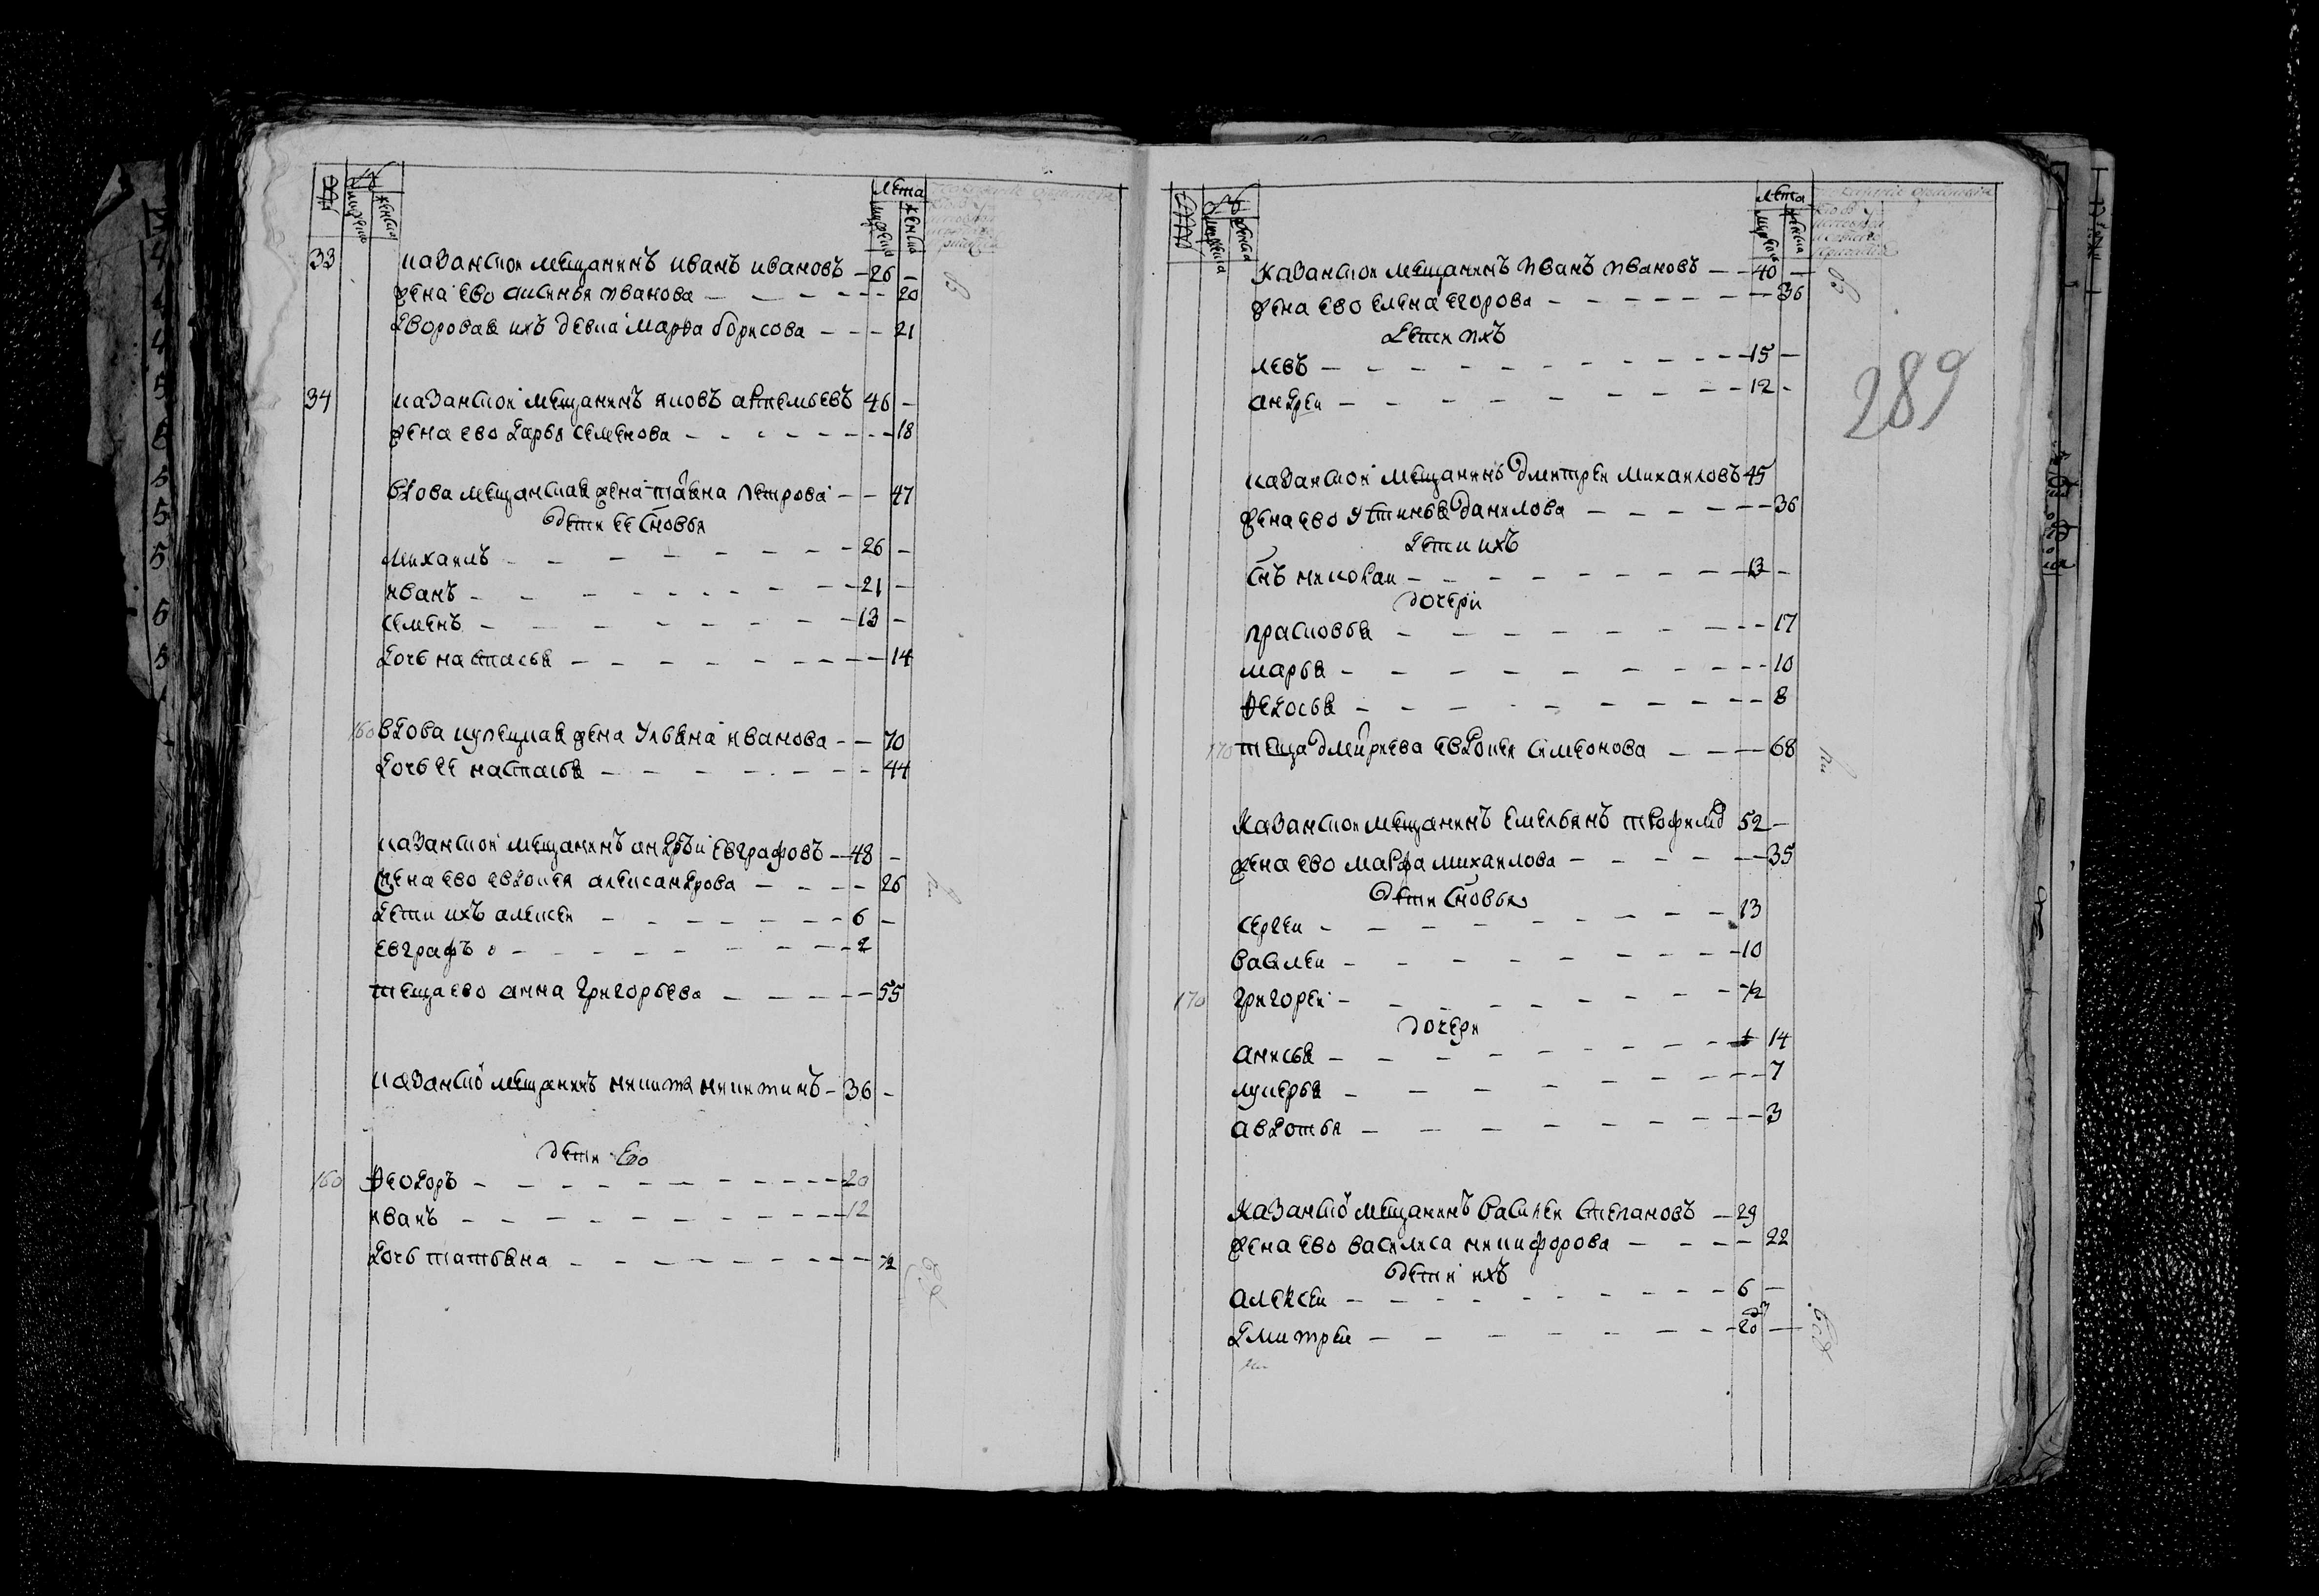 лета
мужеска
женска
33 казанской мещанинъ иванъ ивановъ 26
жена ево аксинья иванова 20
дворовая ихъ девка марфа борисова 21
34 казанской мещанинъ яковъ артемьевъ 46
жена ево дарья семенова 18
вдова мещанская жена татьяна петрова 47
дети ее сновья
михаилъ 26
иванъ 21
семенъ 13
дочь настасья 14
160 вдова купецкая жена ульяна иванова 70
дочь ее настасья 44
казанской мещанинъ андрѣй евграфовъ 48
жена ево евдокея александрова 26
дети ихъ алексеи 6
евграфъ 2
теща ево анна григорьева 55
казанской мещанинъ никита никитинъ 36
дети ево
160 федоръ 20
иванъ 12
дочь татьяна ½
лета
мужеска
женска
казанской мещанинъ иванъ ивановъ 40
жена ево елена егорова 36
дети ихъ
левъ 15
андреи 12
289
казанской мещанинъ дмитреи михаиловъ 45
жена ево устинья данилова 36
дети ихъ
снъ николаи 13
дочери
прасковья 17
марья 10
федосья 8
170 теща дмитриева евдокея симеонова 68
казанской мещанинъ емельянъ трофимовъ 52
жена ево марфа михаилова 35
дети сновья
сергеи 13
василеи 10
170 григореи ½
дочери
анисья 14
лукерья 7
авдотья 3
казанской мещанинъ василеи степановъ 29
жена ево василиса никифорова 22
дети ихъ
алексеи 6
дмитреи